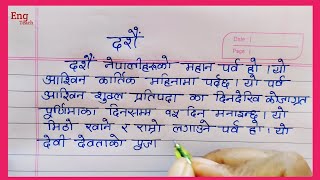 Eng
Teach
Date :
Page :
दशैं
दशैं नेपालीहरूको महान पर्व हो । यो
आश्विन कार्तिक महिनामा पर्दछ । यो पर्व
आश्विन शुक्ल प्रतिपदा का दिनदेखि कोजाग्रत
पूर्णिमाका दिनसम्म १५ दिन मनाइन्छ । यो
मिठो खाने र राम्रो लगाउने पर्व हो । यो
देवी देवताको पुजा